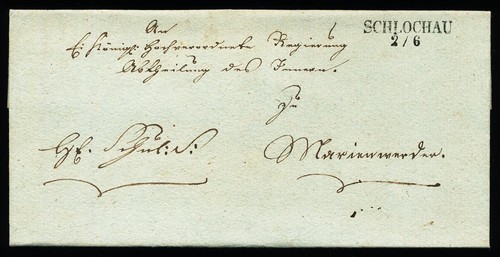 SCHLOCHAU
2/6
An
Ei Königl: Hochverordnete Regierung
Abtheilung des Innern.
Zu
Schul: S: Marienwerder.